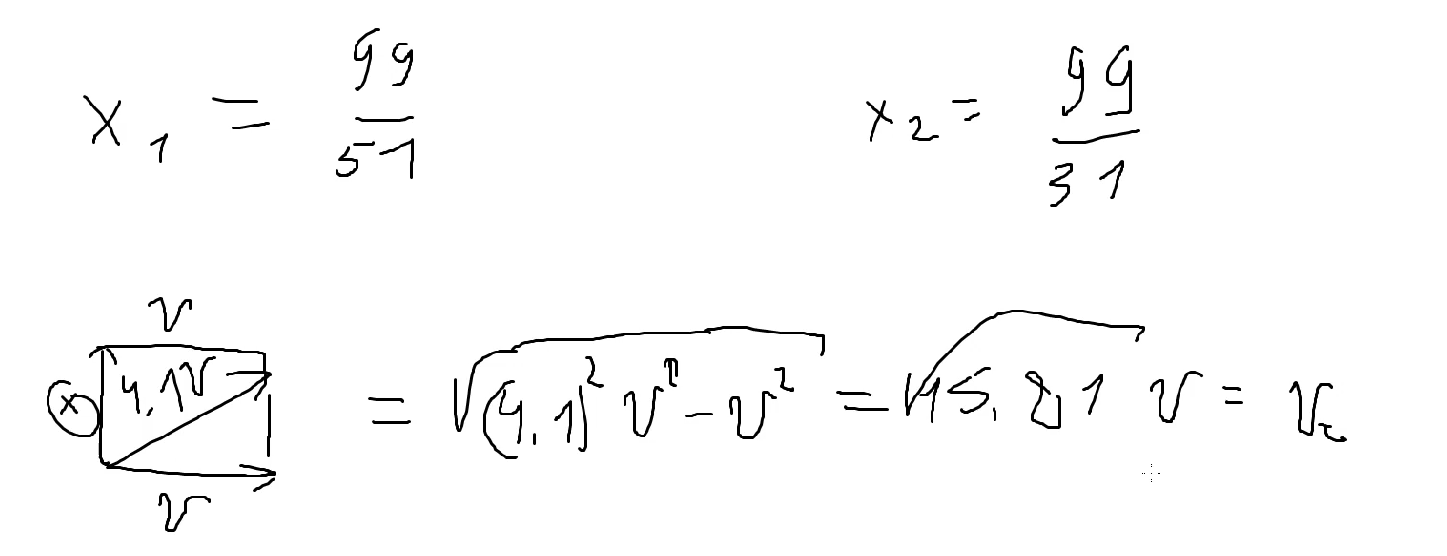 x₁ = 99/51
x₂ = 99/31
v
ⓧ 4.1v = √((4.1)² v² - v²) = √15.81 v = v₂
v